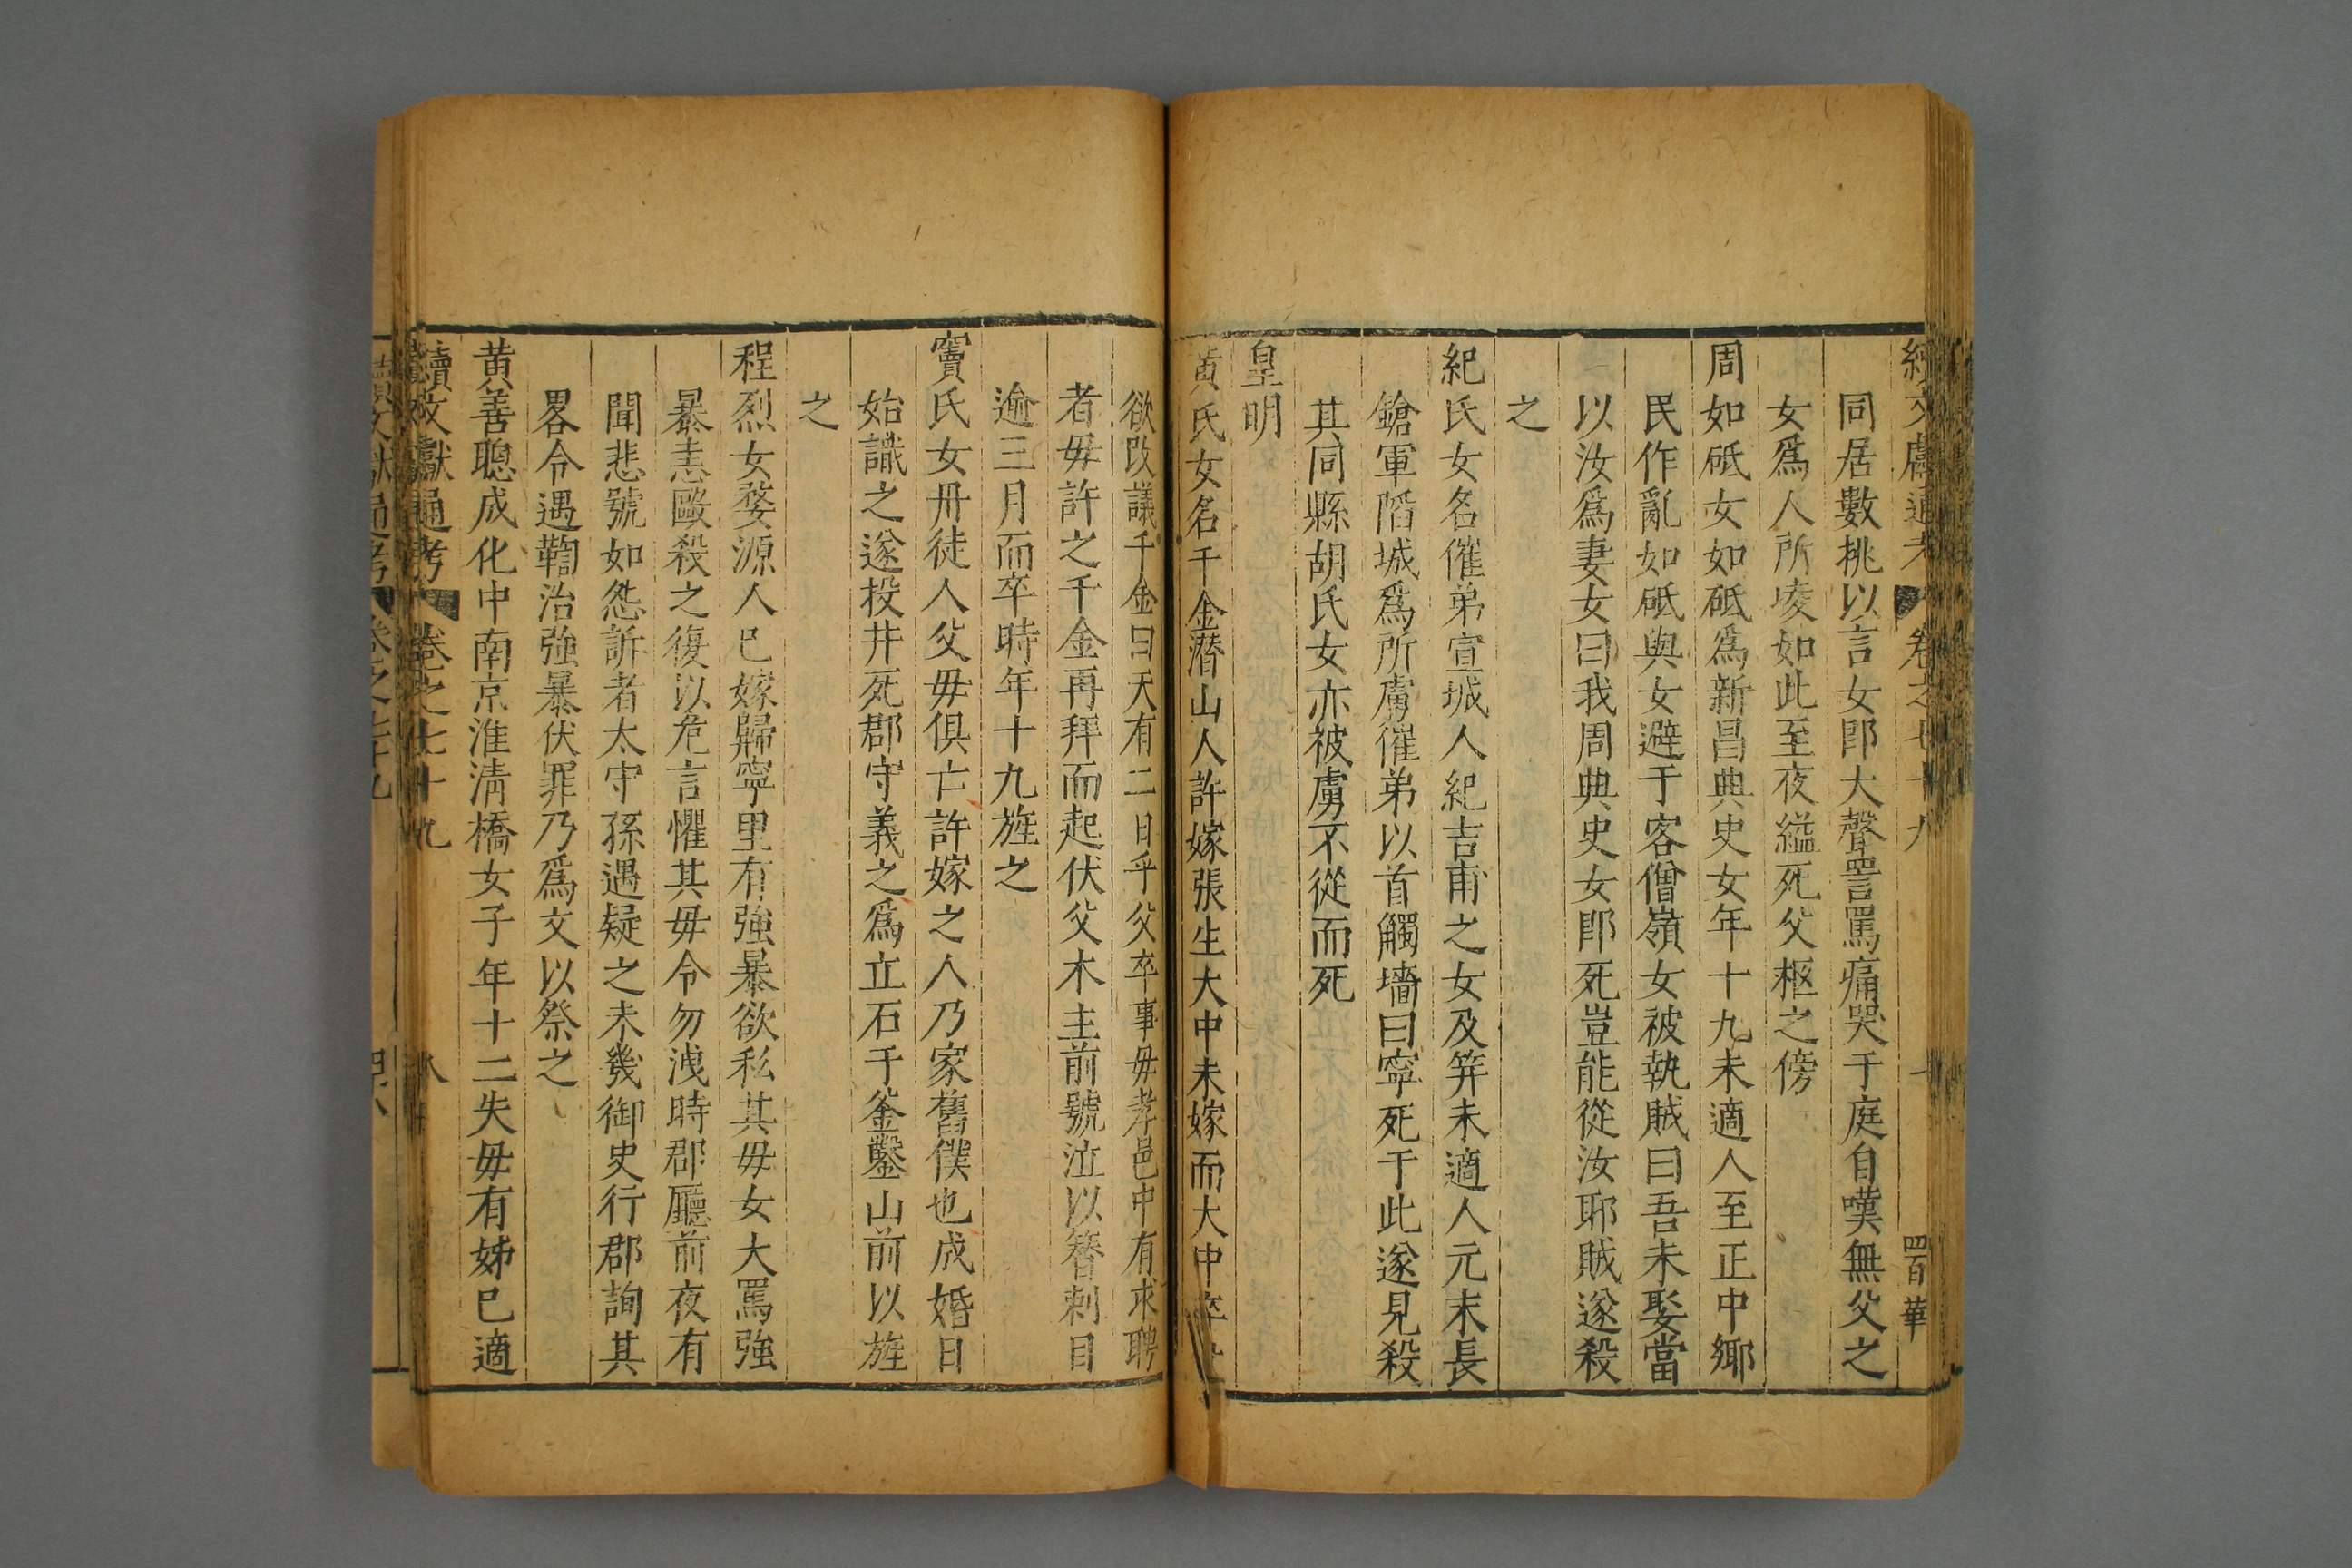 續文獻通考 卷之七十九 四百華
同居數挑以言女郎大聲詈罵痛哭于庭自嘆無父之
女爲人所凌如此至夜縊死父柩之傍
周如砥女如砥爲新昌典史女年十九未適人至正中鄉
民作亂如砥與女避于客僧嶺女被執賊曰吾未娶當
以汝爲妻女曰我周典史女卽死豈能從汝耶賊遂殺
之
紀氏女名催弟宣城人紀吉甫之女及筓未適人元末長
鎗軍陷城爲所虜催弟以首觸墻曰寧死于此遂見殺
其同縣胡氏女亦被虜不從而死
皇明
黄氏女名千金潛山人許嫁張生大中未嫁而大中卒
欲改議千金曰天有二日乎父卒事毋孝邑中有求聘
者毋許之千金再拜而起伏父木主前號泣以簪刺目
逾三月而卒時年十九旌之
竇氏女丹徒人父毋俱亡許嫁之人乃家舊僕也成婚日
始識之遂投井死郡守義之爲立石于釜鑿山前以旌
之
程烈女婺源人已嫁歸寧里有強暴欲私其毋女大罵強
暴恚毆殺之復以危言懼其毋令勿洩時郡廳前夜有
聞悲號如怨訴者太守孫遇疑之未幾御史行郡詢其
畧令遇鞫治強暴伏罪乃爲文以祭之
黄善聰成化中南京淮清橋女子年十二失毋有姊已適
續文獻通考 卷之七十九 八
續文獻通考 卷之七十九